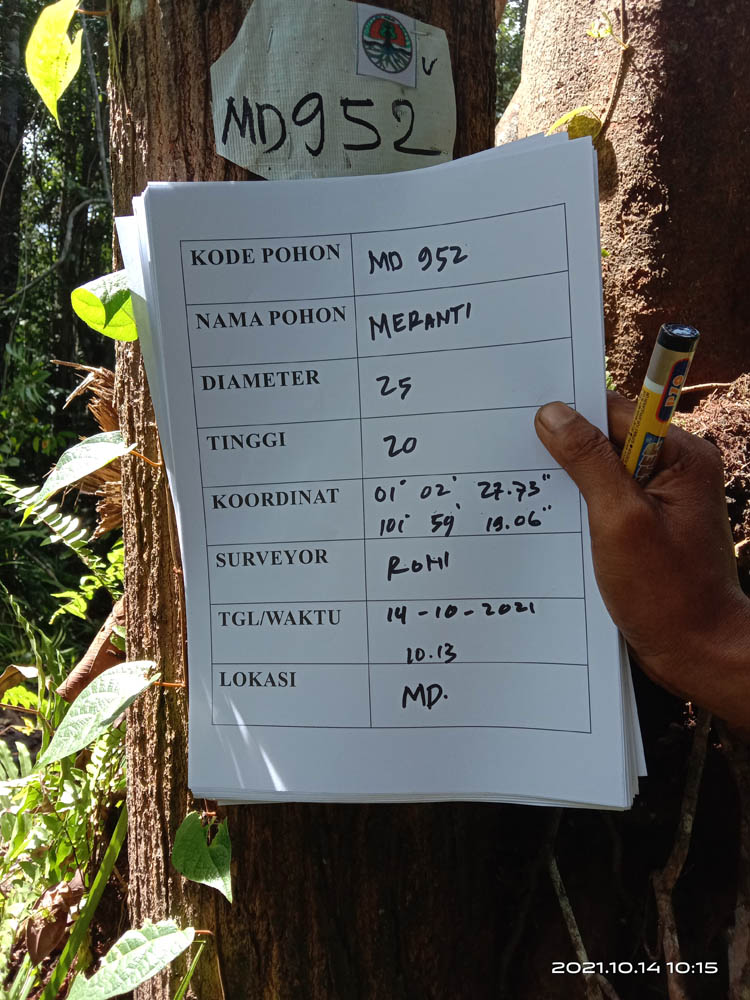 MD952
V
KODE POHON MD 952
NAMA POHON MERANTI
DIAMETER 25
TINGGI 20
KOORDINAT 01° 02' 27.73"
101° 59' 19.06"
SURVEYOR ROMI
TGL/WAKTU 14-10-2021
10.13
LOKASI MD.
2021.10.14 10:15